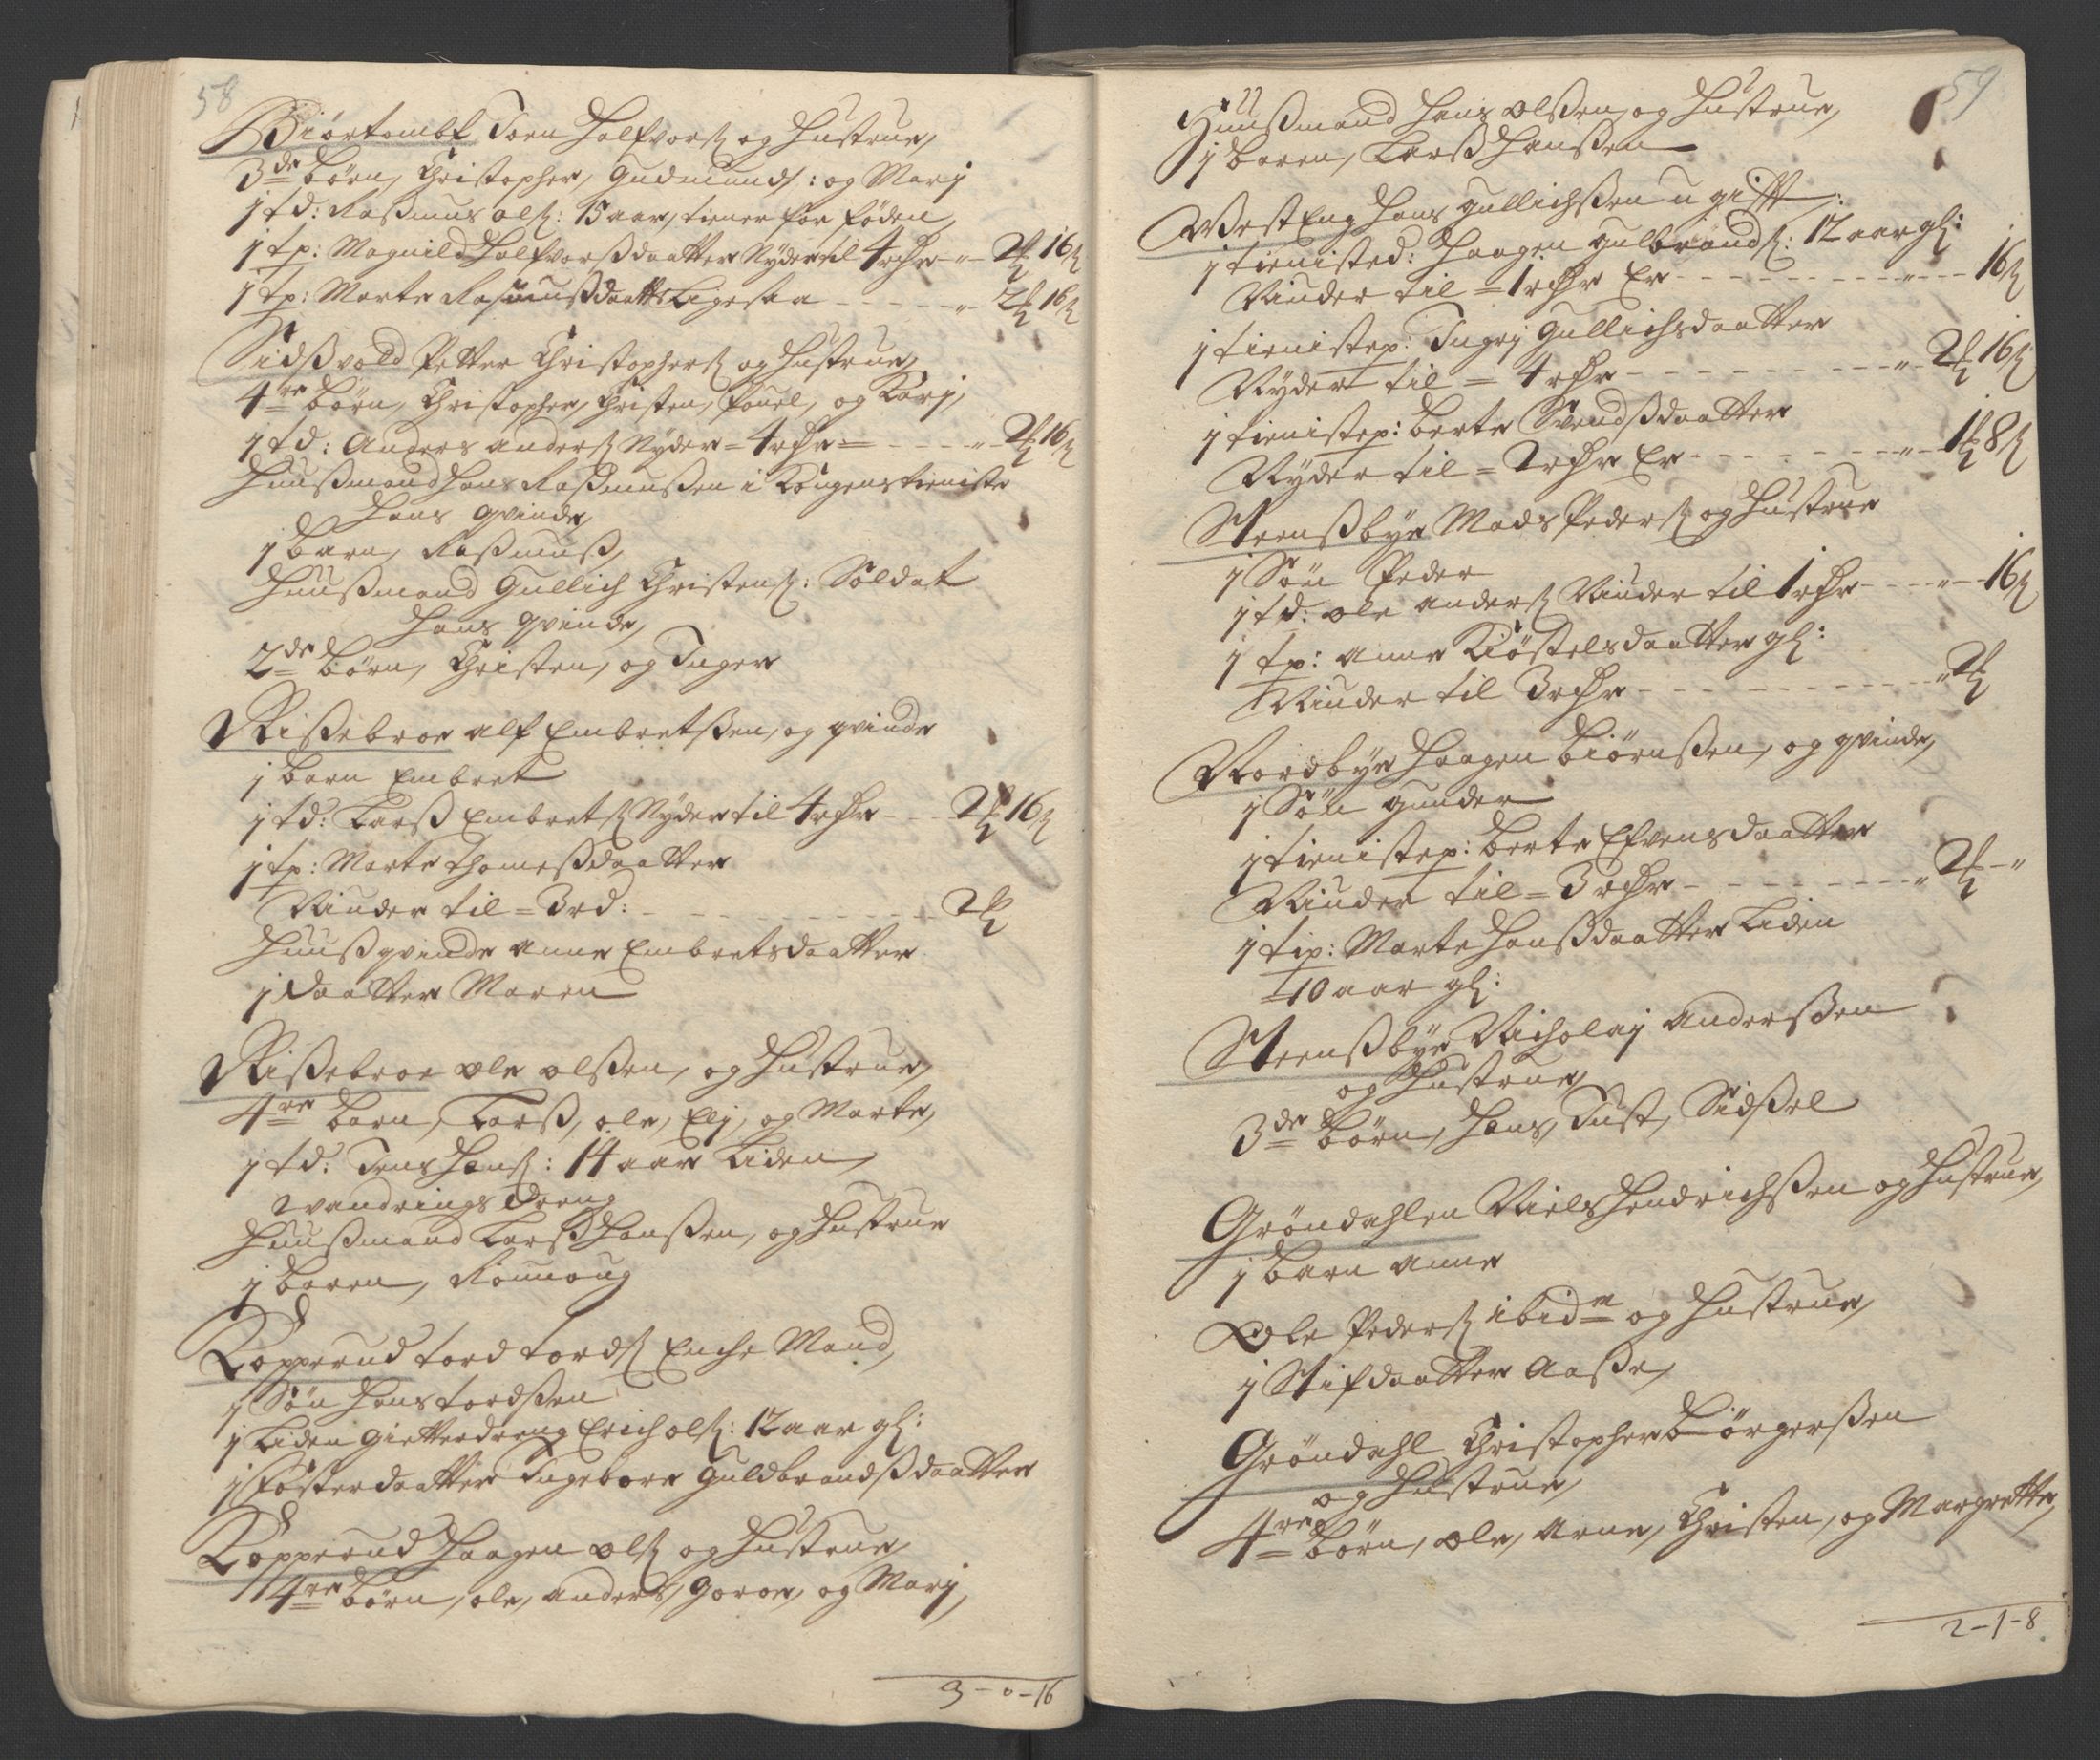 58
Biørtombt Joen Halfvors: og Hustrue,
3de børn, Christopher, Gudmund: og Marj
1 td: Rasmus ols: 15 aar, tiener for føden,
1 tp: Magnild Halfvorsdaatter Nyder til 4 rdr - " - 2 16
1 tp: Marte Rasmusdaatter Ligesaa - - - - " 2 16
Sidsvold Petter Christophers: og Hustrue,
4re børn, Christopher, Christen, Pouel, og Karj,
1 td: Anders Anders: Nyder = 4 rdr = - - - " - 2 16
Huusmand Hans Rasmussen i Kongens tieniste
Hans qvinde,
1 barn, Rasmus,
Huusmand Gullich Christens: Soldat
Hans qvinde,
2de børn, Christen, og Inger
Rissebroe Alf Embretsen, og qvinde
1 barn Embret
1 td: Lars Embrets: Nyder til 4 rdr - - - 2 16
1 tp: Marte Thomesdaatter
Niuder til = 3 rd: - - - - - - - - - 2
Huusqvinde Anne Embretsdaatter
1 daatter Maren
Rissebroe Ole olsen, og Hustrue,
4re børn, Lars, ole, Elj, og Marte,
1 td: Jens Hans: 14 aar Liden
vandrings dreng
Huusmand Lars Hansen, og Hustrue
1 baren, Rønnoug
Lopperud tord tords: Enche Mand,
1 Søn Hans tordsen
1 Liden Gietterdreng Erich ols: 12 aar gl:
1 Fosterdaatter Ingebore Guldbrandsdaatter
Lopperud Haagen ols: og Hustrue,
4re børn, ole, Anders, Goroe, og Marj,
3 - 0 - 16
59
Huusmand Hans olsen og Hustrue,
1 baren, Lars Hansen
WestEng Hans Gullichsen u gift:
1 tienisted: Haagen Gulbrands: 12 aar gl:
Niuder til = 1 rdr Er - - - - - - - - " - - 16
1 tienistep: Ingrj Gullichsdaatter
Nyder til = 4 rdr - - - - - - - - - " 2 16
1 tienistep: berte Svendsdaatter
Nyder til = 2 rdr Er - - - - - - - " - 1 8
Steensbye Mads Peders: og Hustrue
1 Søn Peder
1 td: ole Anders: Niuder til 1 rdr - - - " - 16
1 tp: Anne Kiøstelsdaatter gl:
Niuder til 3 rdr - - - - - - - - - " 2
Nordbye Haagen biørnsen, og qvinde,
1 Søn Gunder
1 tienistep: berte Efvensdaatter
Niuder til = 3 rdr - - - - - - - - " 2 - "
1 tip: Marte Hansdaatter Liden
10 aar gl:
Steensbye Nicholaj Andersen
og Hustrue,
3de børn, Hans, Just, Sidsel
Grøndahlen Niels Hendrichsen og Hustrue,
1 barn Anne
Ole Peders: ibidm og Hustrue,
1 Stifdaatter Aase,
Grøndahl Christopher børgersen
og Hustrue,
4re børn, ole, Arne, Christen, og Margrette,
2 - 1 - 8